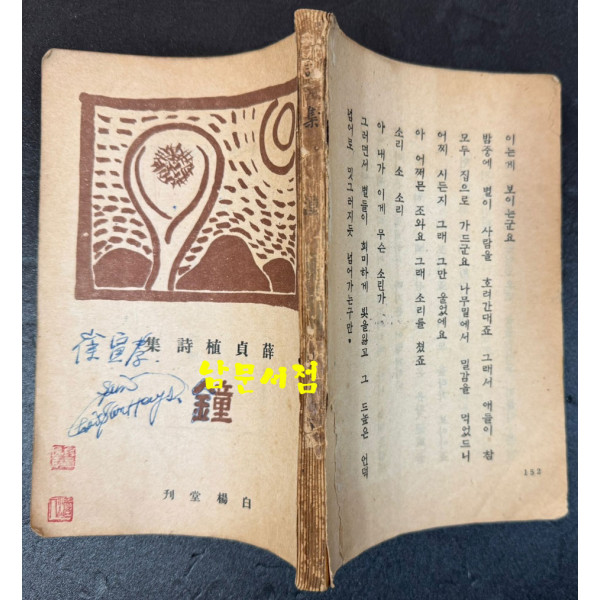 薛貞植詩集
남문서점
鐘
白楊堂刊
集
이는게 보이는군요
밤중에 별이 사람을 호려간대죠 그래서 애들이 참
모두 집으로 가드군요 나무밑에서 밀감을 먹었드니
어찌 시든지 그래 그만 울었에요
아 어쩌믄 조와요 그래 소리를 쳤죠
소리 소 소리
아 내가 이게 무슨 소린가
그러면서 별들이 희미하게 빛을잃고 그 드높은 언덕
넘어로 밋그러지듯 넘어가는구만。
152